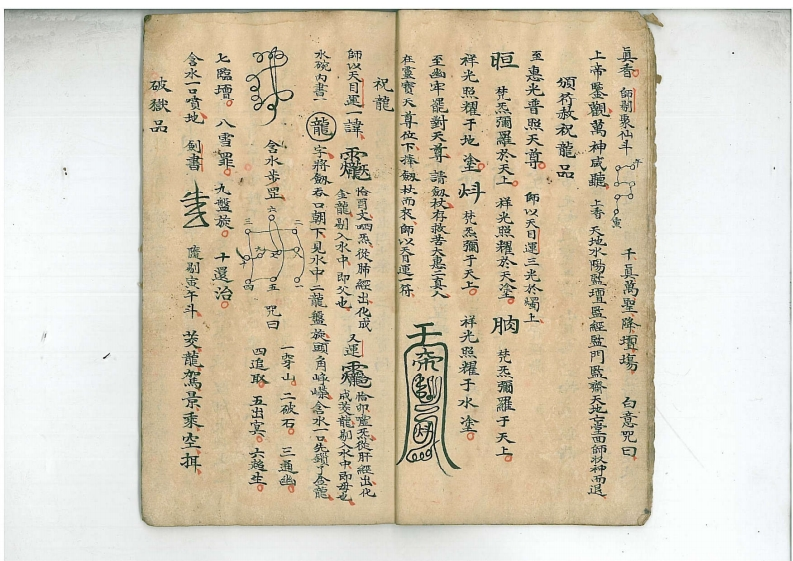 眞香 師剔聚仙斗 寅 千眞萬聖降壇塲 白意咒曰
上帝鑒觀萬神咸聽 上香 天地水陽監壇監經監門監齋天地六靈面師狀神而退
頒符赦祝龍品
至惠光普照天尊 師以天目運三光於燭上
晅 梵炁彌羅於天上 祥光照耀於天塗 朒 梵炁彌羅于天上
祥光照耀于地塗 㶣 梵炁彌于天上 祥光照耀于水塗
至幽牢罷對天尊 請劔杖存救苦大惠二眞人
在靈寶天尊位下捧劔杖而來師以天目運一符
祝龍
師以天目運一諱 恰酉文哂炁從肺經出化成 金龍剔入水中即父也 又運 恰卯 炁從肝經出化 成茭龍剔入水中即母也
水碗內書一 龍 字將劔吞口朝下見水中二龍盤旋頭角崢嶸含水一口先鎖了金龍
含水步罡 六 三 二 七 五 四 一 咒曰 一穿山 二破石 三通幽
四追取 五出冥 六超生
七臨壇 八雪罪 九盤旋 十還治
含水一口噴地 劍書 隨剔寅午斗 茭龍駕景乘空 拜
破獄品